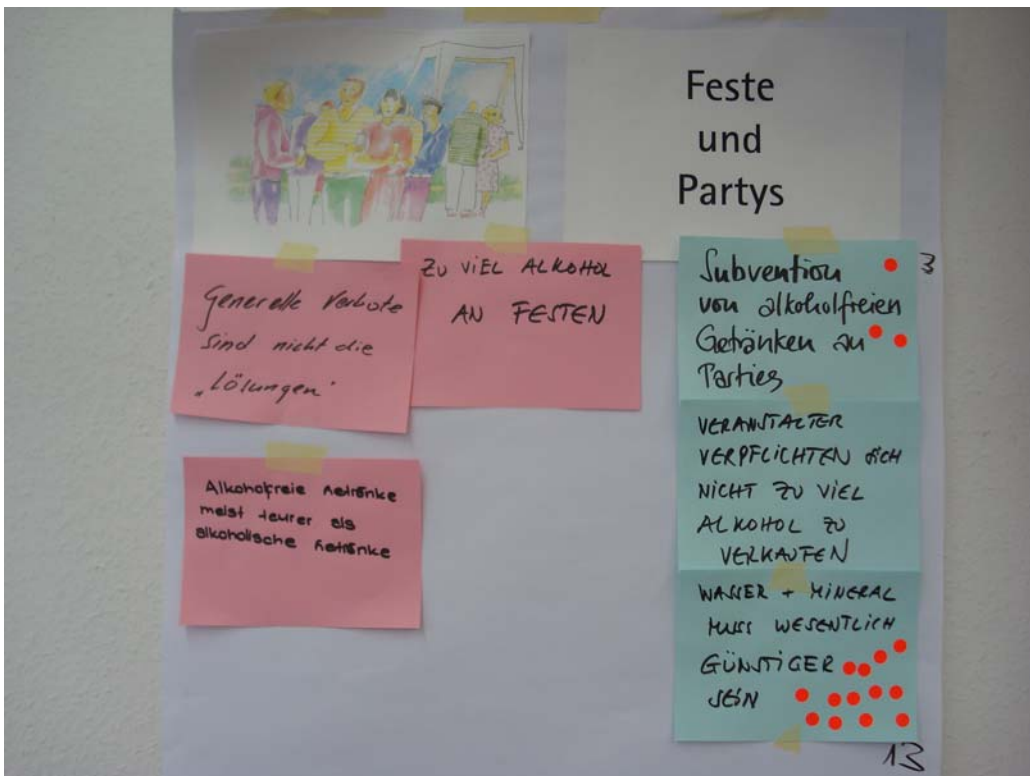 Feste
und
Partys
Generelle Verbote
sind nicht die
„Lösungen"
ZU VIEL ALKOHOL
AN FESTEN
Alkoholfreie Getränke
meist teurer als
alkoholische Getränke
Subvention
von alkoholfreien
Getränken an
Parties
3
VERANSTALTER
VERPFLICHTEN SICH
NICHT ZU VIEL
ALKOHOL ZU
VERKAUFEN
WASSER + MINERAL
MUSS WESENTLICH
GÜNSTIGER
SEIN
13